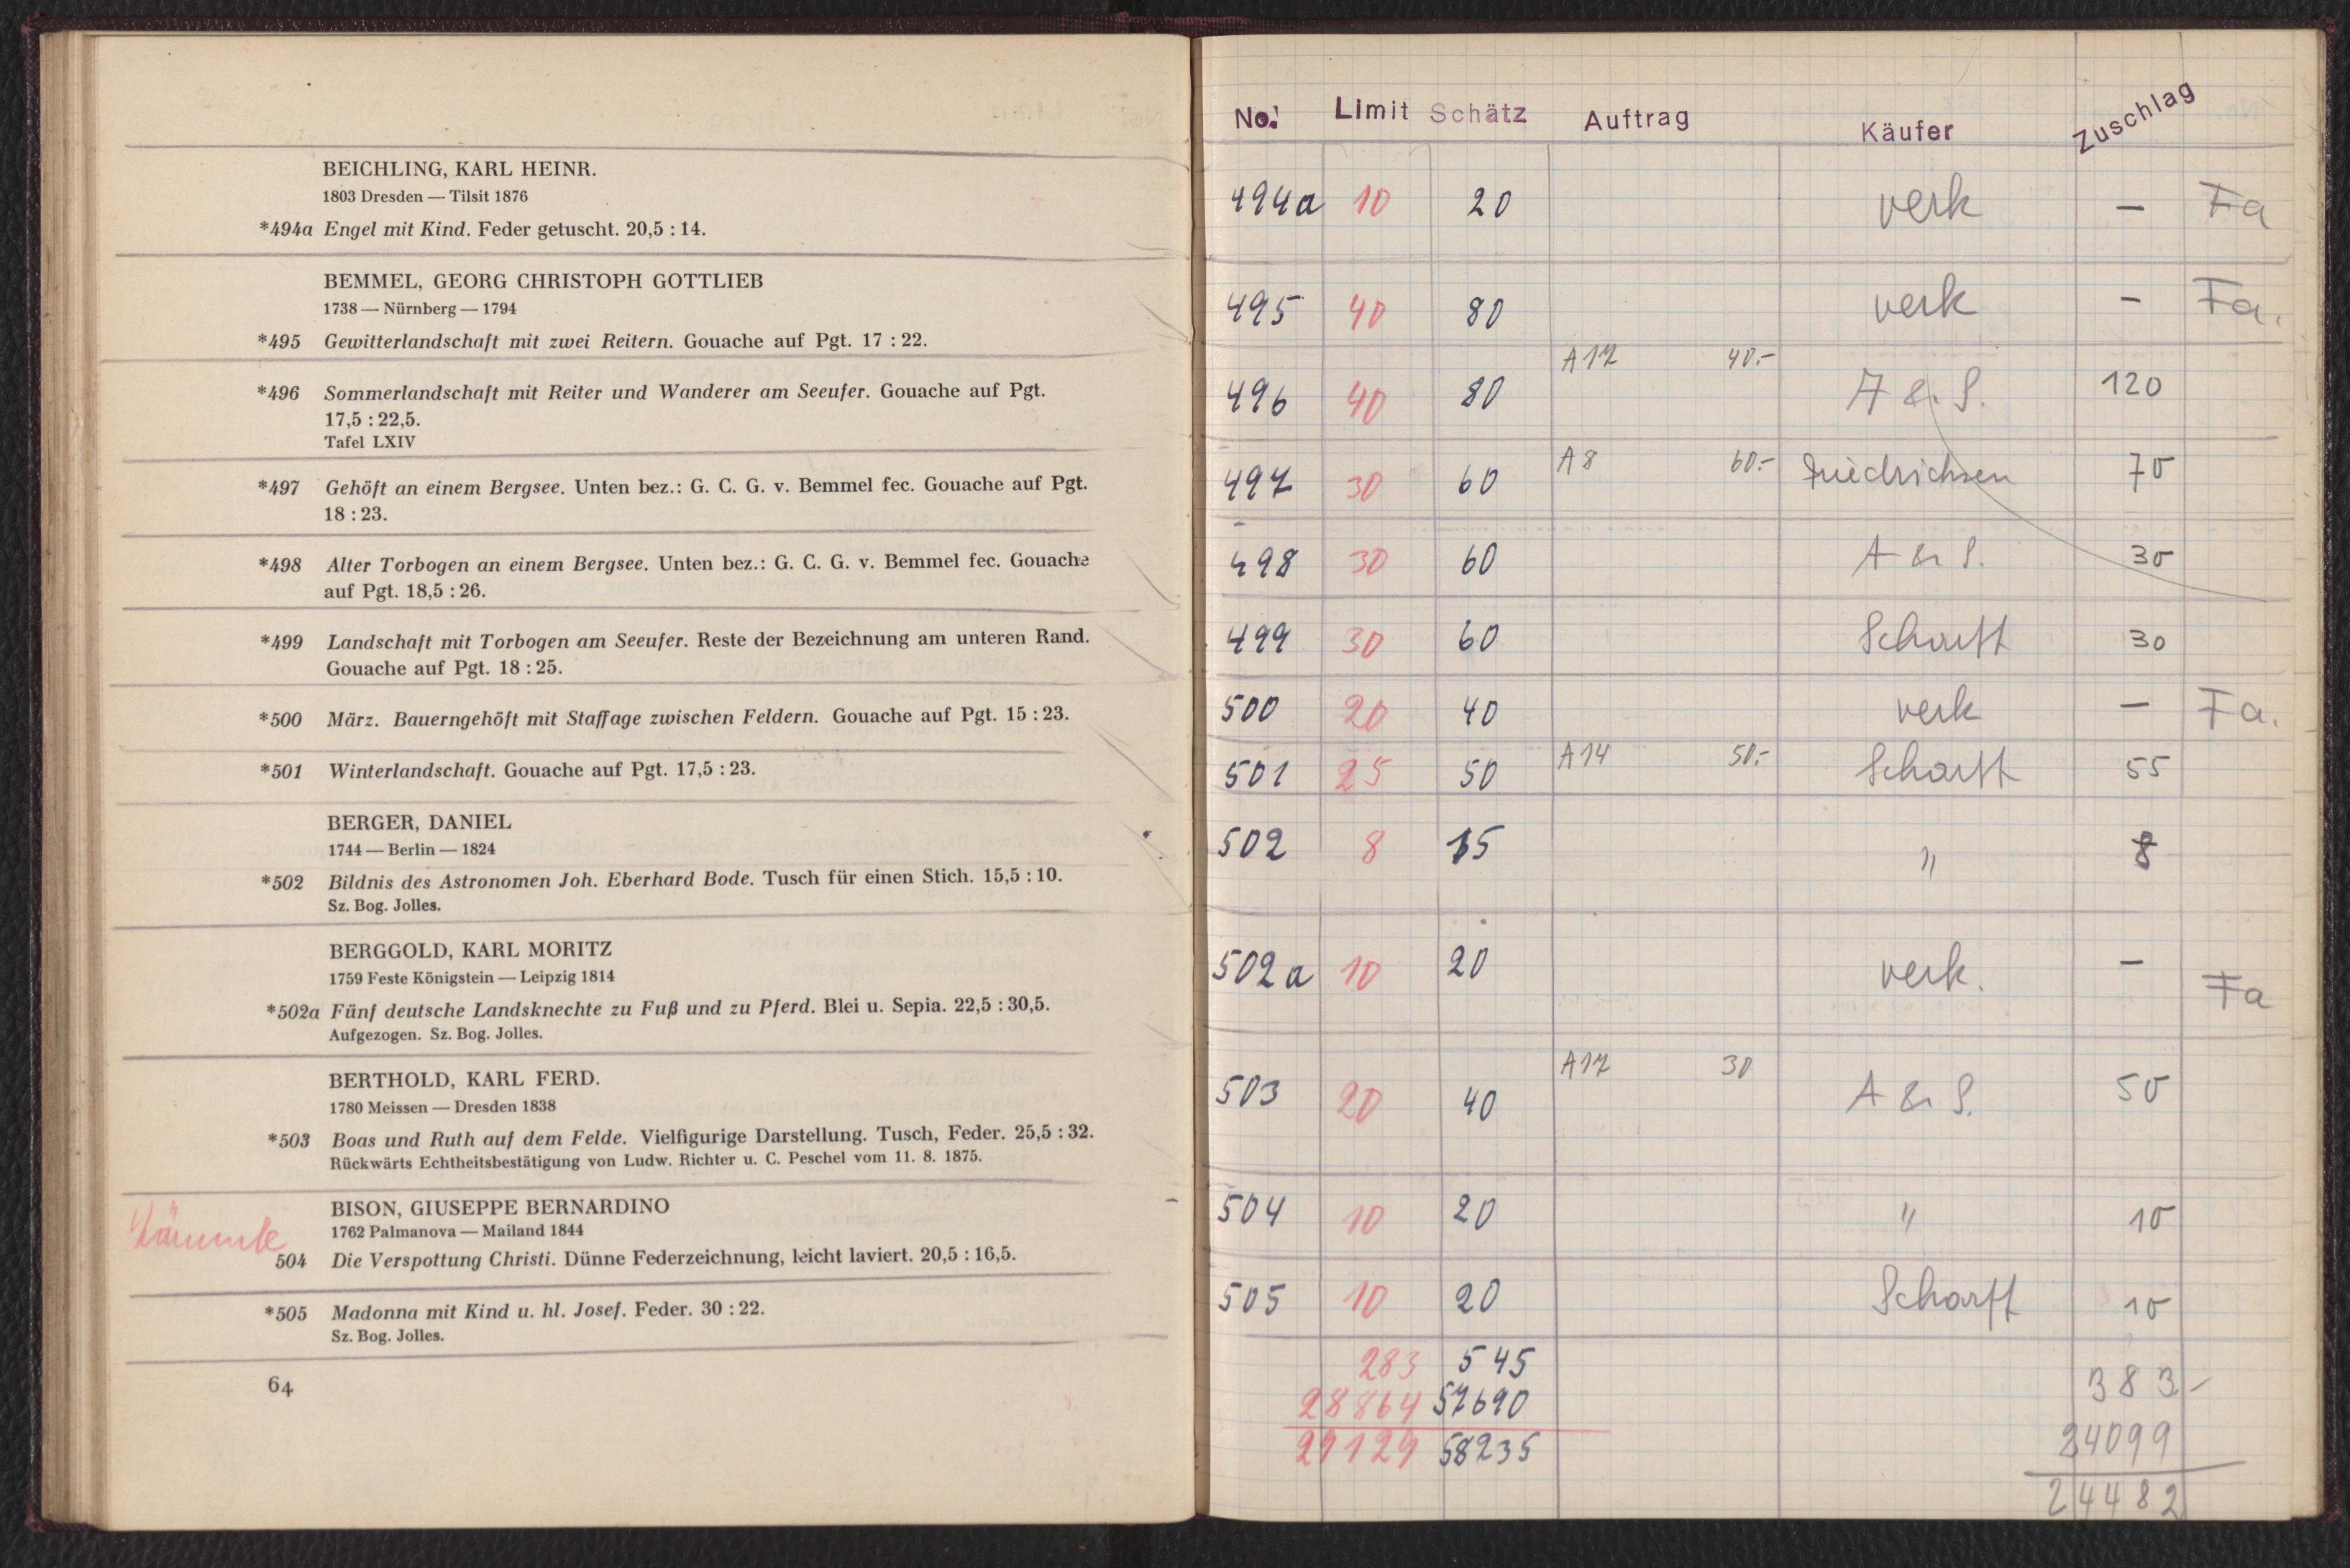 BEICHLING, KARL HEINR.
1803 Dresden — Tilsit 1876
*494a Engel mit Kind. Feder getuscht. 20,5 : 14.
BEMMEL, GEORG CHRISTOPH GOTTLIEB
1738 — Nürnberg — 1794
*495 Gewitterlandschaft mit zwei Reitern. Gouache auf Pgt. 17 : 22.
*496 Sommerlandschaft mit Reiter und Wanderer am Seeufer. Gouache auf Pgt.
17,5 : 22,5.
Tafel LXIV
*497 Gehöft an einem Bergsee. Unten bez.: G. C. G. v. Bemmel fec. Gouache auf Pgt.
18 : 23.
*498 Alter Torbogen an einem Bergsee. Unten bez.: G. C. G. v. Bemmel fec. Gouache
auf Pgt. 18,5 : 26.
*499 Landschaft mit Torbogen am Seeufer. Reste der Bezeichnung am unteren Rand.
Gouache auf Pgt. 18 : 25.
*500 März. Bauerngehöft mit Staffage zwischen Feldern. Gouache auf Pgt. 15 : 23.
*501 Winterlandschaft. Gouache auf Pgt. 17,5 : 23.
BERGER, DANIEL
1744 — Berlin — 1824
*502 Bildnis des Astronomen Joh. Eberhard Bode. Tusch für einen Stich. 15,5 : 10.
Sz. Bog. Jolles.
BERGGOLD, KARL MORITZ
1759 Feste Königstein — Leipzig 1814
*502a Fünf deutsche Landsknechte zu Fuß und zu Pferd. Blei u. Sepia. 22,5 : 30,5.
Aufgezogen. Sz. Bog. Jolles.
BERTHOLD, KARL FERD.
1780 Meissen — Dresden 1838
*503 Boas und Ruth auf dem Felde. Vielfigurige Darstellung. Tusch, Feder. 25,5 : 32.
Rückwärts Echtheitsbestätigung von Ludw. Richter u. C. Peschel vom 11. 8. 1875.
BISON, GIUSEPPE BERNARDINO
1762 Palmanova — Mailand 1844
504 Die Verspottung Christi. Dünne Federzeichnung, leicht laviert. 20,5 : 16,5.
*505 Madonna mit Kind u. hl. Josef. Feder. 30 : 22.
Sz. Bog. Jolles.
64
No. Limit Schätz Auftrag Käufer Zuschlag
494a 10 20 verk — Fa
495 40 80 verk — Fa.
496 40 80 A17 40.- A & S. 120
497 30 60 A8 60.- Friedrichsen 70
498 30 60 A & S. 30
499 30 60 Scharff 30
500 20 40 verk — Fa.
501 25 50 A14 50.- Scharff 55
502 8 15 " 8
502a 10 20 verk. — Fa
503 20 40 A17 30 A & S. 50
504 10 20 " 10
505 10 20 Scharff 10
283 545 383.-
28864 57690 24099
29129 58235 24482